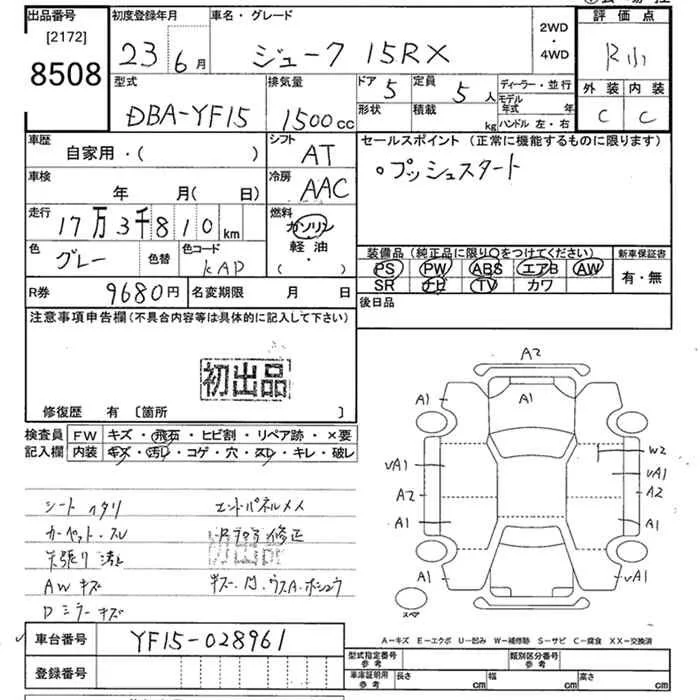 出品番号
[2172]
8508
初度登録年月
23 6月
車名・グレード
ジューク 15RX
2WD
・
4WD
評価点
R小
外装 内装
C C
型式
DBA-YF15
排気量
1500cc
ドア 5
形状
定員 5人
積載 kg
ディーラー・並行
モデル年式 年
ハンドル 左・右
車歴
自家用・( )
シフト
AT
車検
年 月( 日)
冷房
AAC
走行
17万3千810km
燃料
ガソリン
軽油・
( )
色
グレー
色替
色コード
KAD
セールスポイント (正常に機能するものに限ります)
○プッシュスタート
装備品 (純正品に限り○をつけてください)
PS PW ABS エアB AW
SR ナビ TV カワ
新車保証書
有・無
後日品
R券 9680円 名変期限 月 日
注意事項申告欄(不具合内容等は具体的に記入して下さい)
初出品
修復歴 有 〔箇所 〕
検査員
記入欄
FW キズ・飛石・ヒビ割・リペア跡・×要
内装 キズ・汚レ・コゲ・穴・スレ・キレ・破レ
シートヘタリ
カーペット・スレ
天張り 汚れ
AWキズ
Dミラーキズ
エンドパネルメメ
修正
A2
A1
A1
W2
vA1
vA1
A2
A2
A1
A1
A1
vA1
スペア
A−キズ E−エクボ U−凹み W−補修跡 S−サビ C−腐食 XX−交換済
車台番号 YF15-028961
登録番号
型式指定番号
参考
類別区分番号
参考
車庫証明用
参考
長さ cm 幅 cm 高さ cm